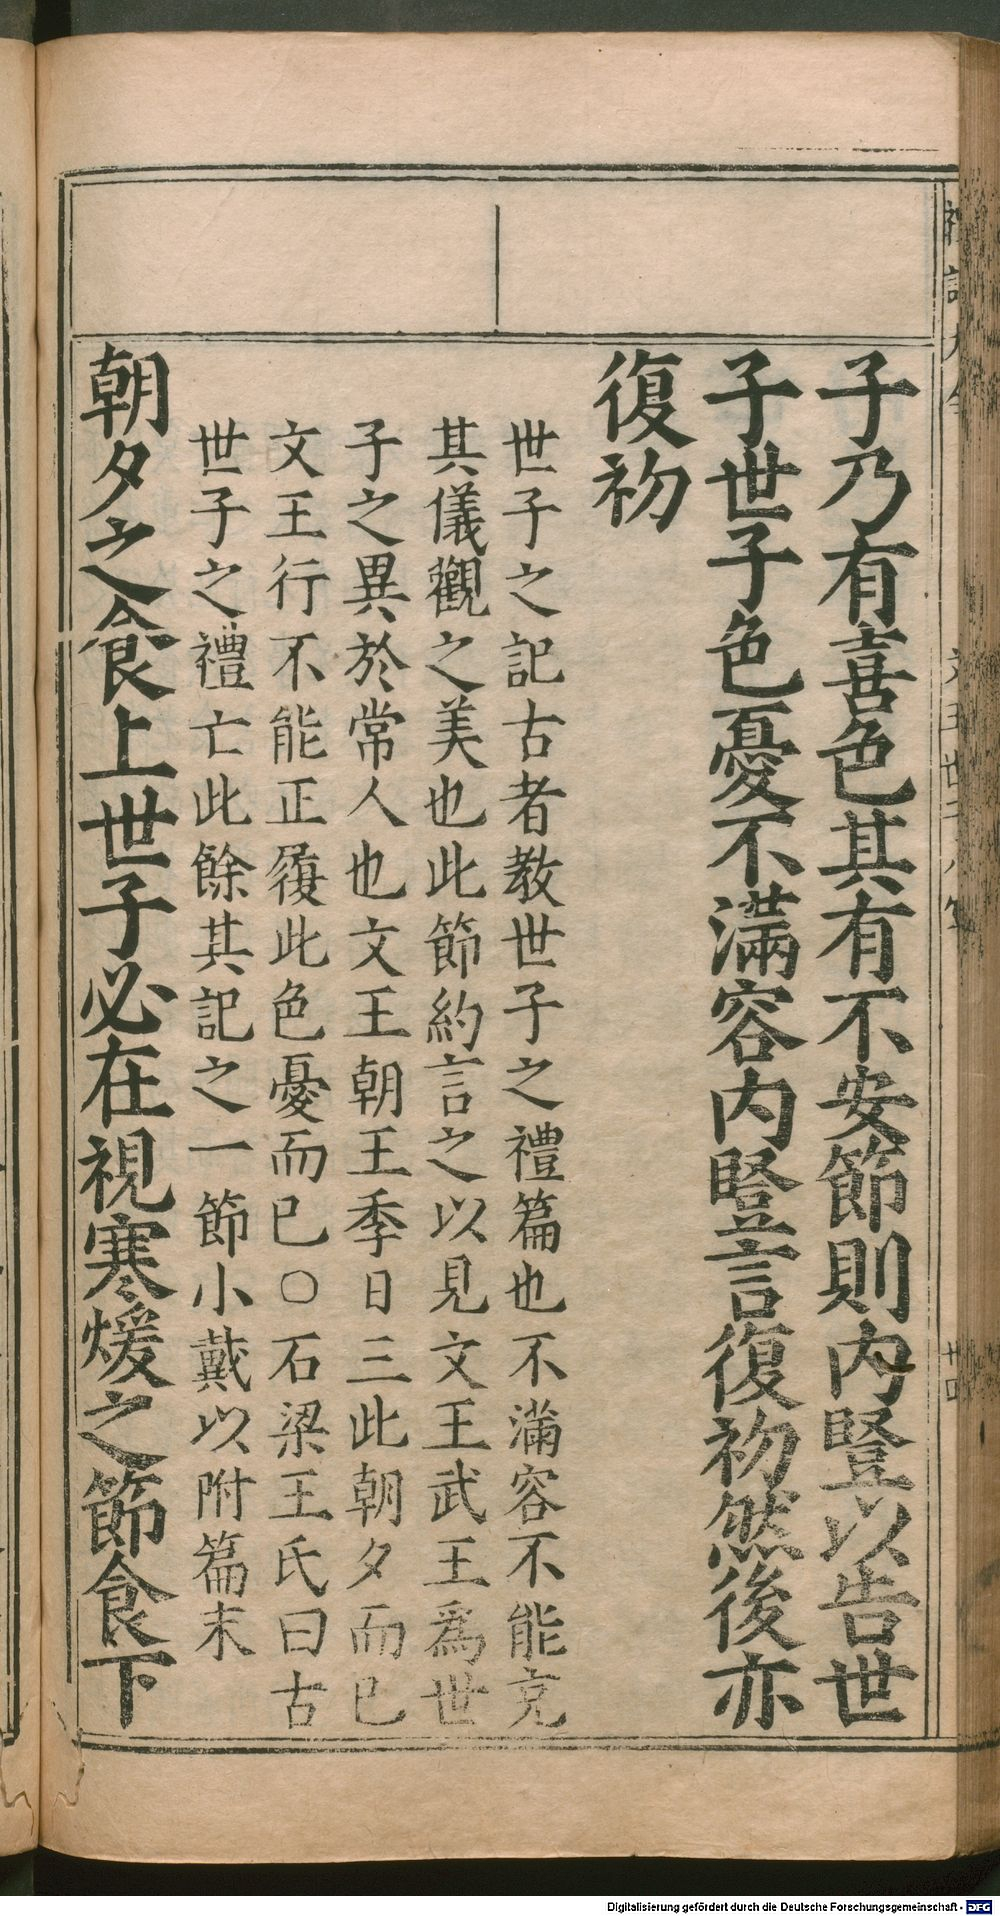 子乃有喜色其有不安節則內豎以告世
子世子色憂不滿容內豎言復初然後亦
復初
世子之記古者教世子之禮篇也不滿容不能充
其儀觀之美也此節約言之以見文王武王爲世
子之異於常人也文王朝王季日三此朝夕而已
文王行不能正履此色憂而已○石梁王氏曰古
世子之禮亡此餘其記之一節小戴以附篇末
朝夕之食上世子必在視寒煖之節食下
Digitalisierung gefördert durch die Deutsche Forschungsgemeinschaft - DFG